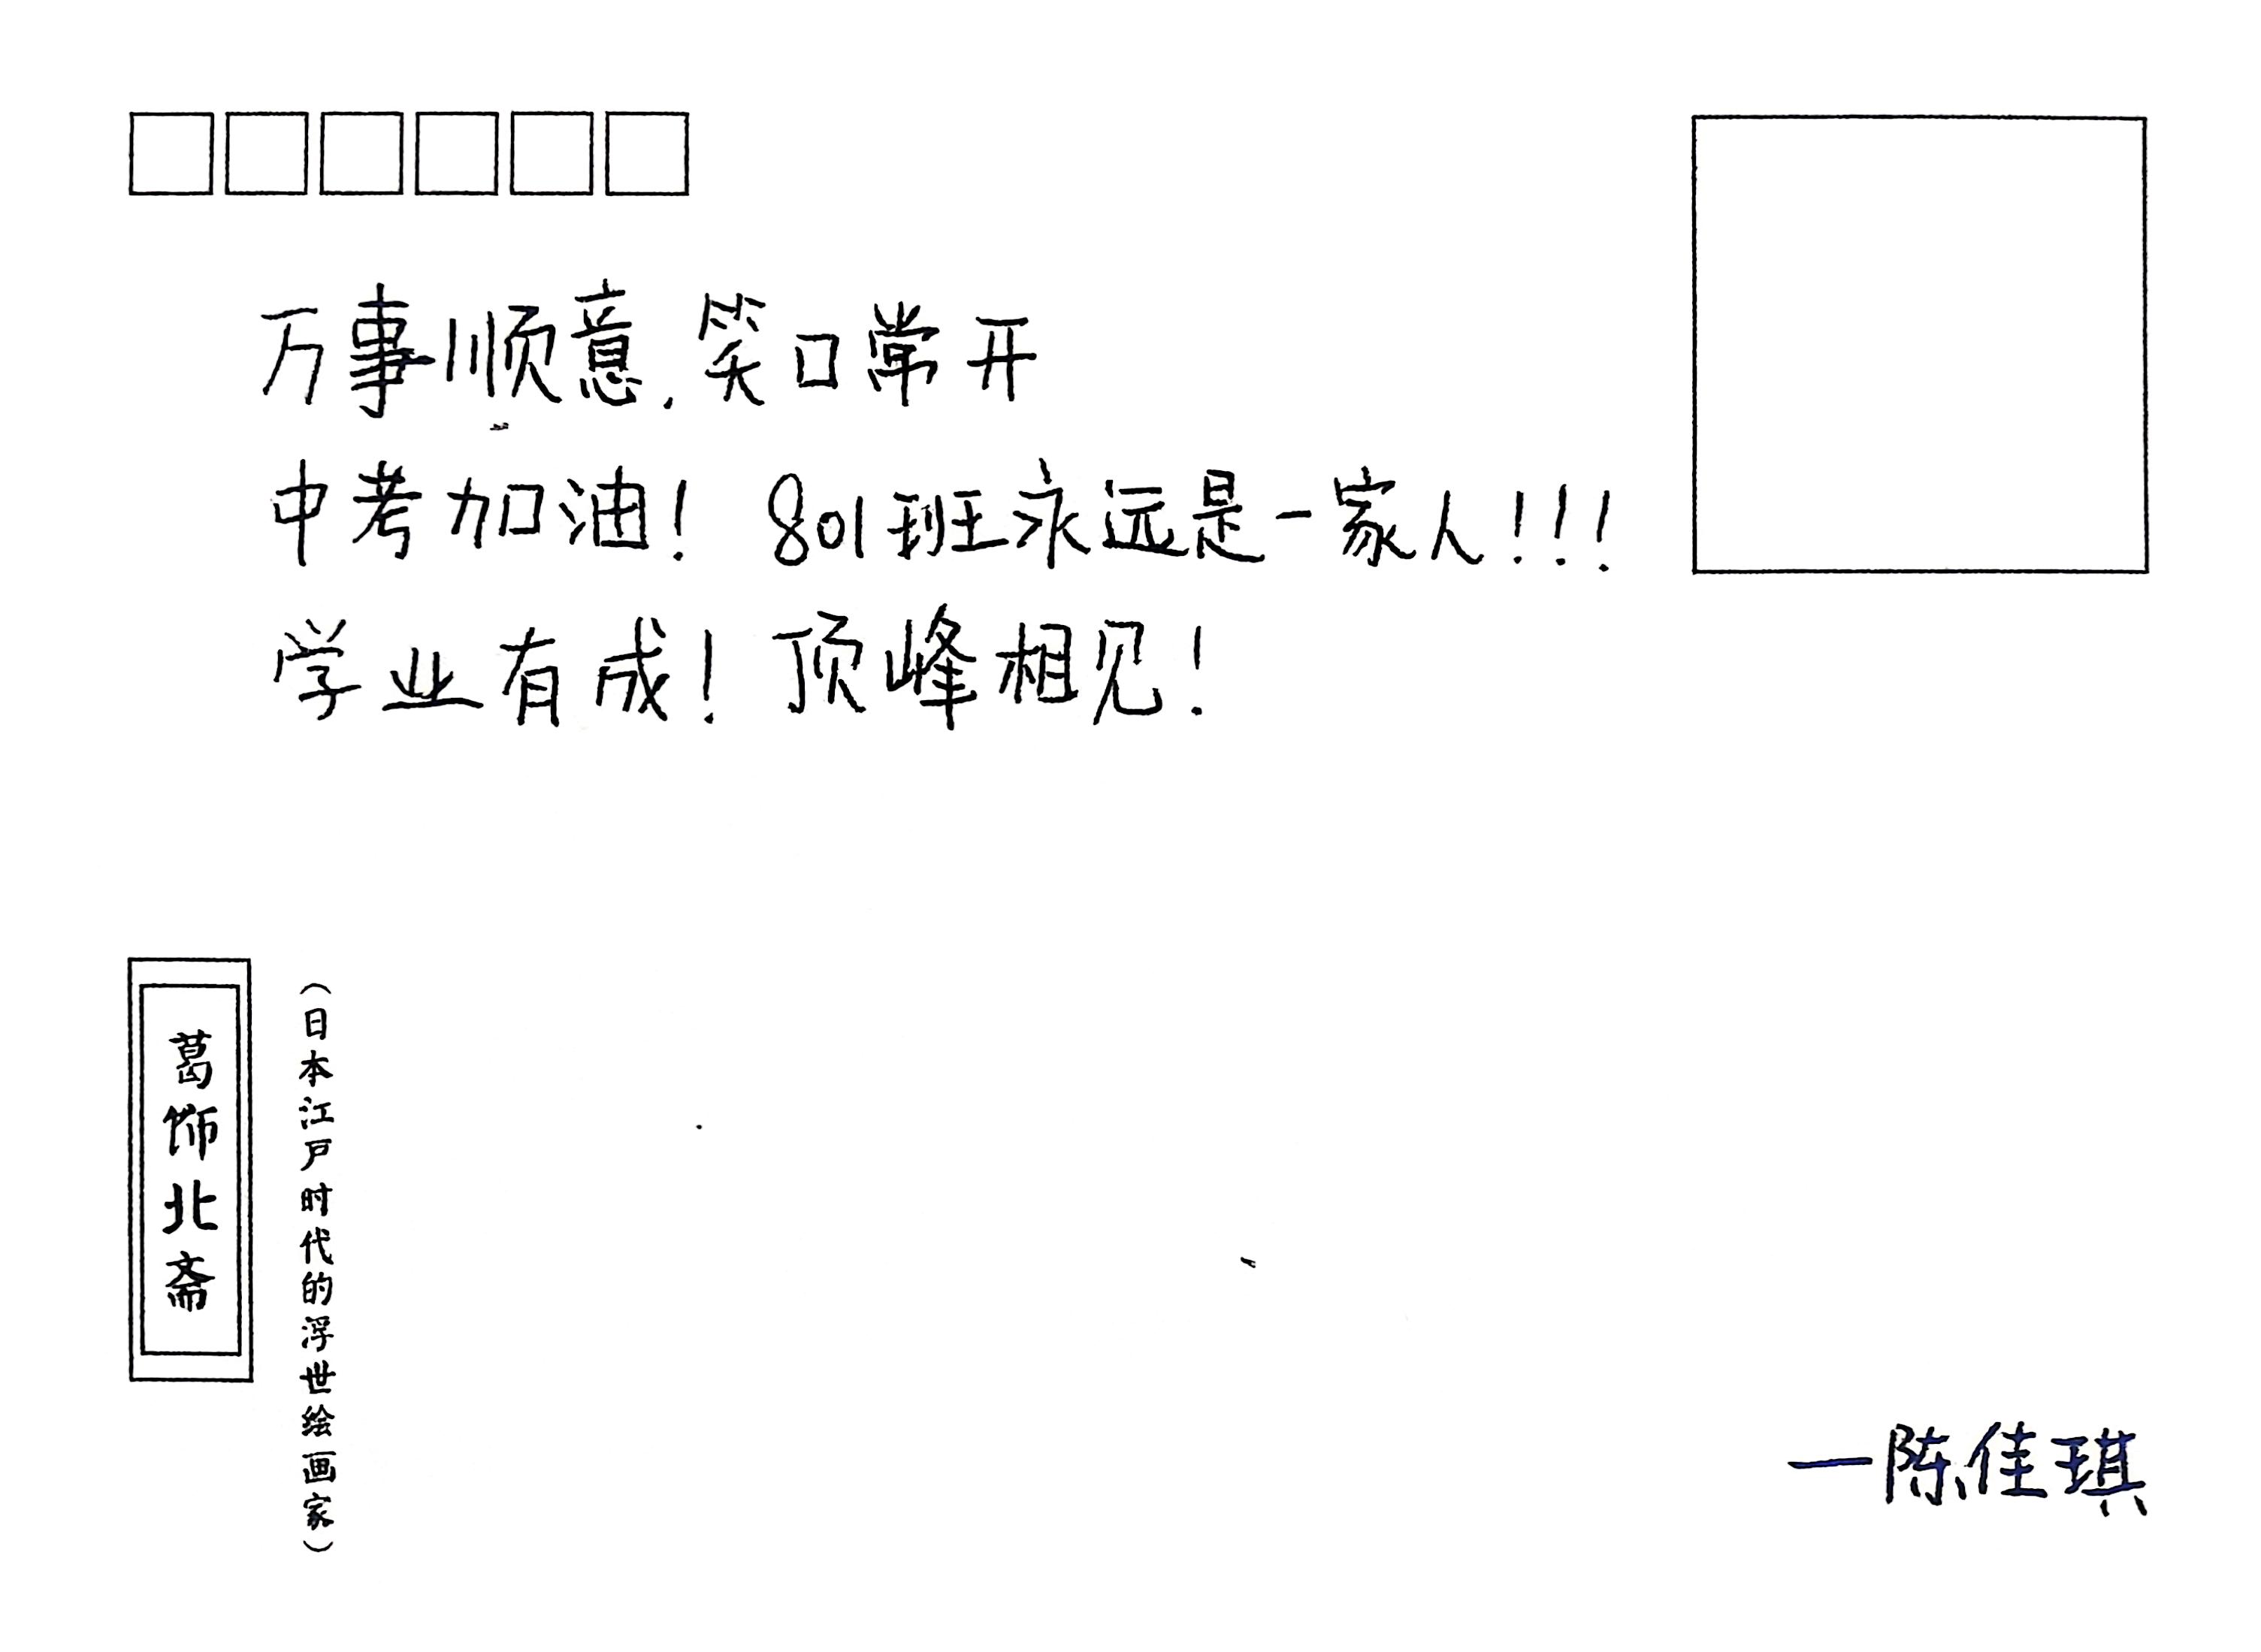 万事顺意,笑口常开
中考加油! 801班永远是一家人!!!
学业有成! 顶峰相见!
葛饰北斋
(日本江戸时代的浮世绘画家)
—陈佳琪